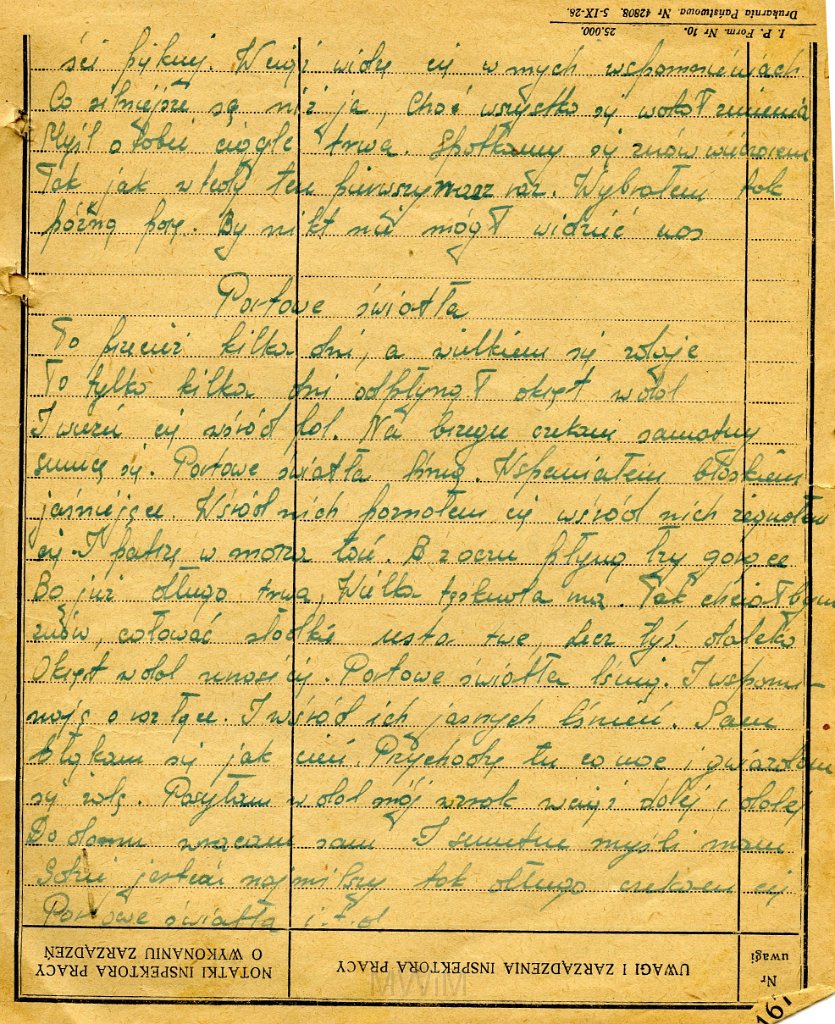 I. P. Form. Nr 10. 25.000.
Drukarnia Państwowa. Nr 42808. 5-IX-28.
ści pięknej. Wciąż widzę cię w mych wspomnieniach
Co silniejsze są niż ja, Choć wszystko się wokół zmienia
Myśl o tobie ciągle trwa. Spotkamy się znów wieczorem
Tak jak wtedy ten pierwszy raz. Wybrałem tak
późną porę. By nikt nie mógł widzieć nas
Portowe światła
To przecież kilka dni, a wiekiem się zdaje
To tylko kilka dni odpłynął okręt w dal
I wiózł cię wśród fal. Na brzegu czekam samotny
smucę się. Portowe światła lśnią. Wspaniałem blaskiem
jaśniejące. Wśród nich poznałem cię wśród nich żegnałem
cię. I patrzę w morza toń. A z oczu płyną łzy gorące
Bo już długo trwa, Wielka tęsknota ma. Tak chciałbym
znów, całować słodkie usta twe, Lecz tyś daleko
Okręt w dal unosi cię. Portowe światła lśnią. I wspomi-
nają o rozłące. I wśród ich jasnych lśnień. Sam
błąkam się jak cień. Przychodzę tu co noc i gwiazdom
się żalę. Posyłam w dal mój wzrok wciąż dalej i dalej
Do domu wracam sam I smutne myśli mam
Gdzie jesteś najmilszy tak długo czekam cię
Portowe światła i.t.d
NOTATKI INSPEKTORA PRACY O WYKONANIU ZARZĄDZEŃ
UWAGI I ZARZĄDZENIA INSPEKTORA PRACY
Nr uwagi
MWiM
161